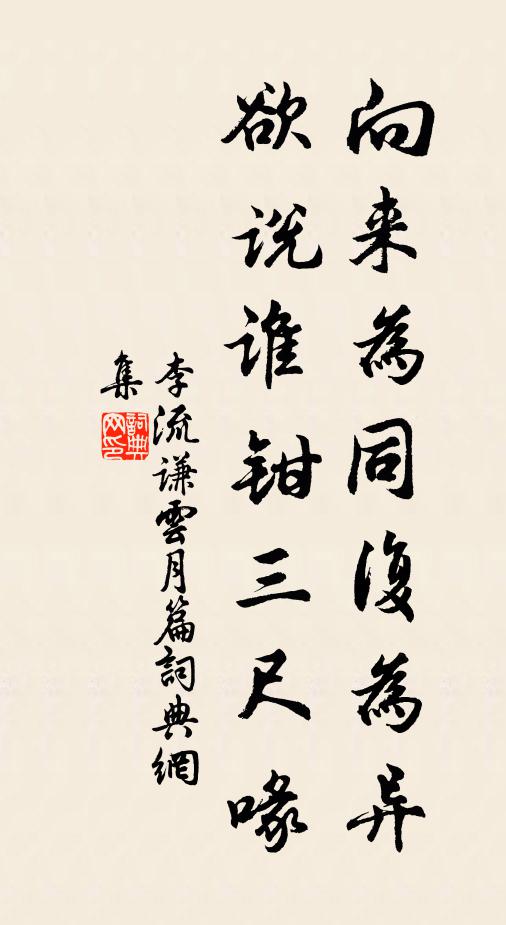 向来為同復為异
欲说谁钳三尺喙
李流谦雲月篇詞典網
集
詞典
网印